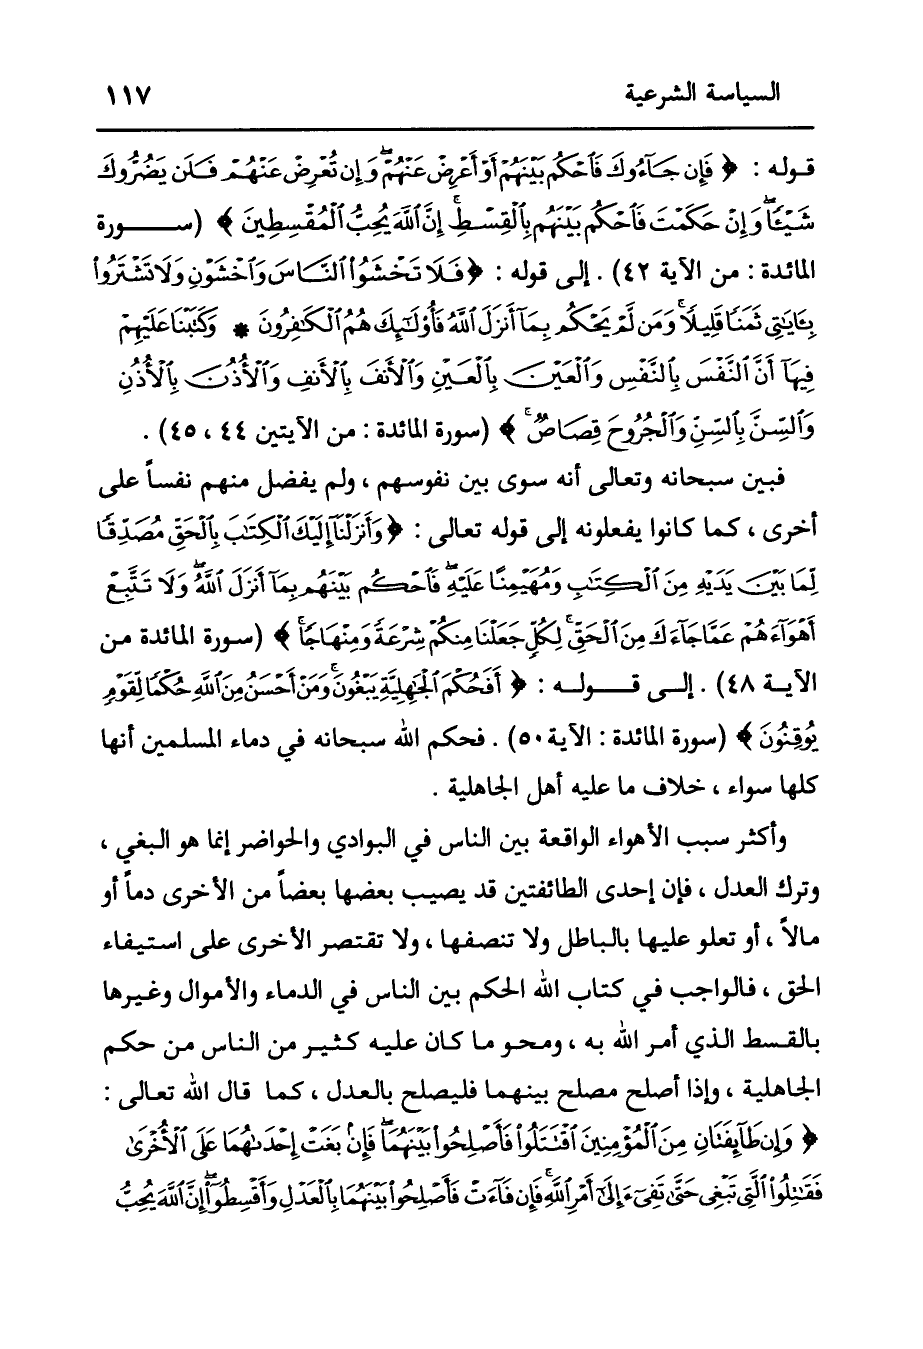 السياسة الشرعية ١١٧
قوله : ﴿ فَإِن جَآءُوكَ فَٱحْكُم بَيْنَهُمْ أَوْ أَعْرِضْ عَنْهُمْ ۖ وَإِن تُعْرِضْ عَنْهُمْ فَلَن يَضُرُّوكَ
شَيْـًٔا ۖ وَإِنْ حَكَمْتَ فَٱحْكُم بَيْنَهُم بِٱلْقِسْطِ ۚ إِنَّ ٱللَّهَ يُحِبُّ ٱلْمُقْسِطِينَ ﴾ (ســـــورة
المائدة : من الآية ٤٢) . إلى قوله : ﴿ فَلَا تَخْشَوُا۟ ٱلنَّاسَ وَٱخْشَوْنِ وَلَا تَشْتَرُوا۟
بِـَٔايَـٰتِى ثَمَنًا قَلِيلًا ۚ وَمَن لَّمْ يَحْكُم بِمَآ أَنزَلَ ٱللَّهُ فَأُو۟لَـٰٓئِكَ هُمُ ٱلْكَـٰفِرُونَ * وَكَتَبْنَا عَلَيْهِمْ
فِيهَآ أَنَّ ٱلنَّفْسَ بِٱلنَّفْسِ وَٱلْعَيْنَ بِٱلْعَيْنِ وَٱلْأَنفَ بِٱلْأَنفِ وَٱلْأُذُنَ بِٱلْأُذُنِ
وَٱلسِّنَّ بِٱلسِّنِّ وَٱلْجُرُوحَ قِصَاصٌ ۚ ﴾ (سورة المائدة : من الآيتين ٤٤ ، ٤٥) .
فبين سبحانه وتعالى أنه سوى بين نفوسهم ، ولم يفضل منهم نفساً على
أخرى ، كما كانوا يفعلونه إلى قوله تعالى : ﴿ وَأَنزَلْنَآ إِلَيْكَ ٱلْكِتَـٰبَ بِٱلْحَقِّ مُصَدِّقًا
لِّمَا بَيْنَ يَدَيْهِ مِنَ ٱلْكِتَـٰبِ وَمُهَيْمِنًا عَلَيْهِ ۖ فَٱحْكُم بَيْنَهُم بِمَآ أَنزَلَ ٱللَّهُ ۖ وَلَا تَتَّبِعْ
أَهْوَآءَهُمْ عَمَّا جَآءَكَ مِنَ ٱلْحَقِّ ۚ لِكُلٍّ جَعَلْنَا مِنكُمْ شِرْعَةً وَمِنْهَاجًا ۚ ﴾ (سورة المائدة من
الآيـة ٤٨) . إلـى قــولــه : ﴿ أَفَحُكْمَ ٱلْجَـٰهِلِيَّةِ يَبْغُونَ ۚ وَمَنْ أَحْسَنُ مِنَ ٱللَّهِ حُكْمًا لِّقَوْمٍ
يُوقِنُونَ ﴾ (سورة المائدة : الآية ٥٠) . فحكم الله سبحانه في دماء المسلمين أنها
كلها سواء ، خلاف ما عليه أهل الجاهلية .
وأكثر سبب الأهواء الواقعة بين الناس في البوادي والحواضر إنما هو البغي ،
وترك العدل ، فإن إحدى الطائفتين قد يصيب بعضها بعضاً من الأخرى دماً أو
مالاً ، أو تعلو عليها بالباطل ولا تنصفها ، ولا تقتصر الأخرى على استيفاء
الحق ، فالواجب في كتاب الله الحكم بين الناس في الدماء والأموال وغيرها
بالقسط الذي أمر الله به ، ومحو ما كان عليه كثير من الناس من حكم
الجاهلية ، وإذا أصلح مصلح بينهما فليصلح بالعدل ، كما قال الله تعالى :
﴿ وَإِن طَآئِفَتَانِ مِنَ ٱلْمُؤْمِنِينَ ٱقْتَتَلُوا۟ فَأَصْلِحُوا۟ بَيْنَهُمَا ۖ فَإِنۢ بَغَتْ إِحْدَىٰهُمَا عَلَى ٱلْأُخْرَىٰ
فَقَـٰتِلُوا۟ ٱلَّتِى تَبْغِى حَتَّىٰ تَفِىٓءَ إِلَىٰٓ أَمْرِ ٱللَّهِ ۚ فَإِن فَآءَتْ فَأَصْلِحُوا۟ بَيْنَهُمَا بِٱلْعَدْلِ وَأَقْسِطُوٓا۟ ۖ إِنَّ ٱللَّهَ يُحِبُّ